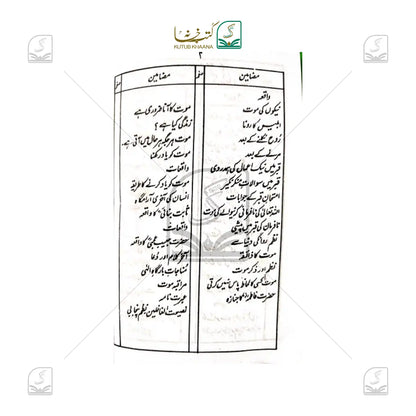 کتب خانہ
KUTUB KHAANA
۲
مضامین
صفحہ
مضامین
صفحہ
واقعہ
نیکوں کی موت
ابلیس کا رونا
روح نکلنے کے بعد
مرنے کے بعد
قبر میں نیک اعمال کی ہمدردی
قبر میں سوالات منکر نکیر
امتحان قبر کے جوابات
اللہ تعالیٰ کی نافرمانی کرنیوالے کی موت
نافرمان کی قبر میں پیشی
نظم روانگی دنیا سے
موت کا ذائقہ
نظم اور ذکر موت
موت کسی کا لحاظ پاس نہیں کرتی
حضرت فاطمہ کا جنازہ
موت کا آنا ضروری ہے
زندگی کیا ہے؟
موت ہر جگہ ہر حال میں آتی ہے۔
موت کو یاد رکھنا
واقعات
موت کو یاد کرنے کا طریقہ
انسان کی آخری آرامگاہ
ثابت بنانی کا واقعہ
واقعات
حضرت حبیب عجمی کا واقعہ
آخر کلام اور دعا
مناجات بارگاہ الٰہی
مراقبہ موت
عبرت نامہ
نصیحت الغافلین نظم پنجابی